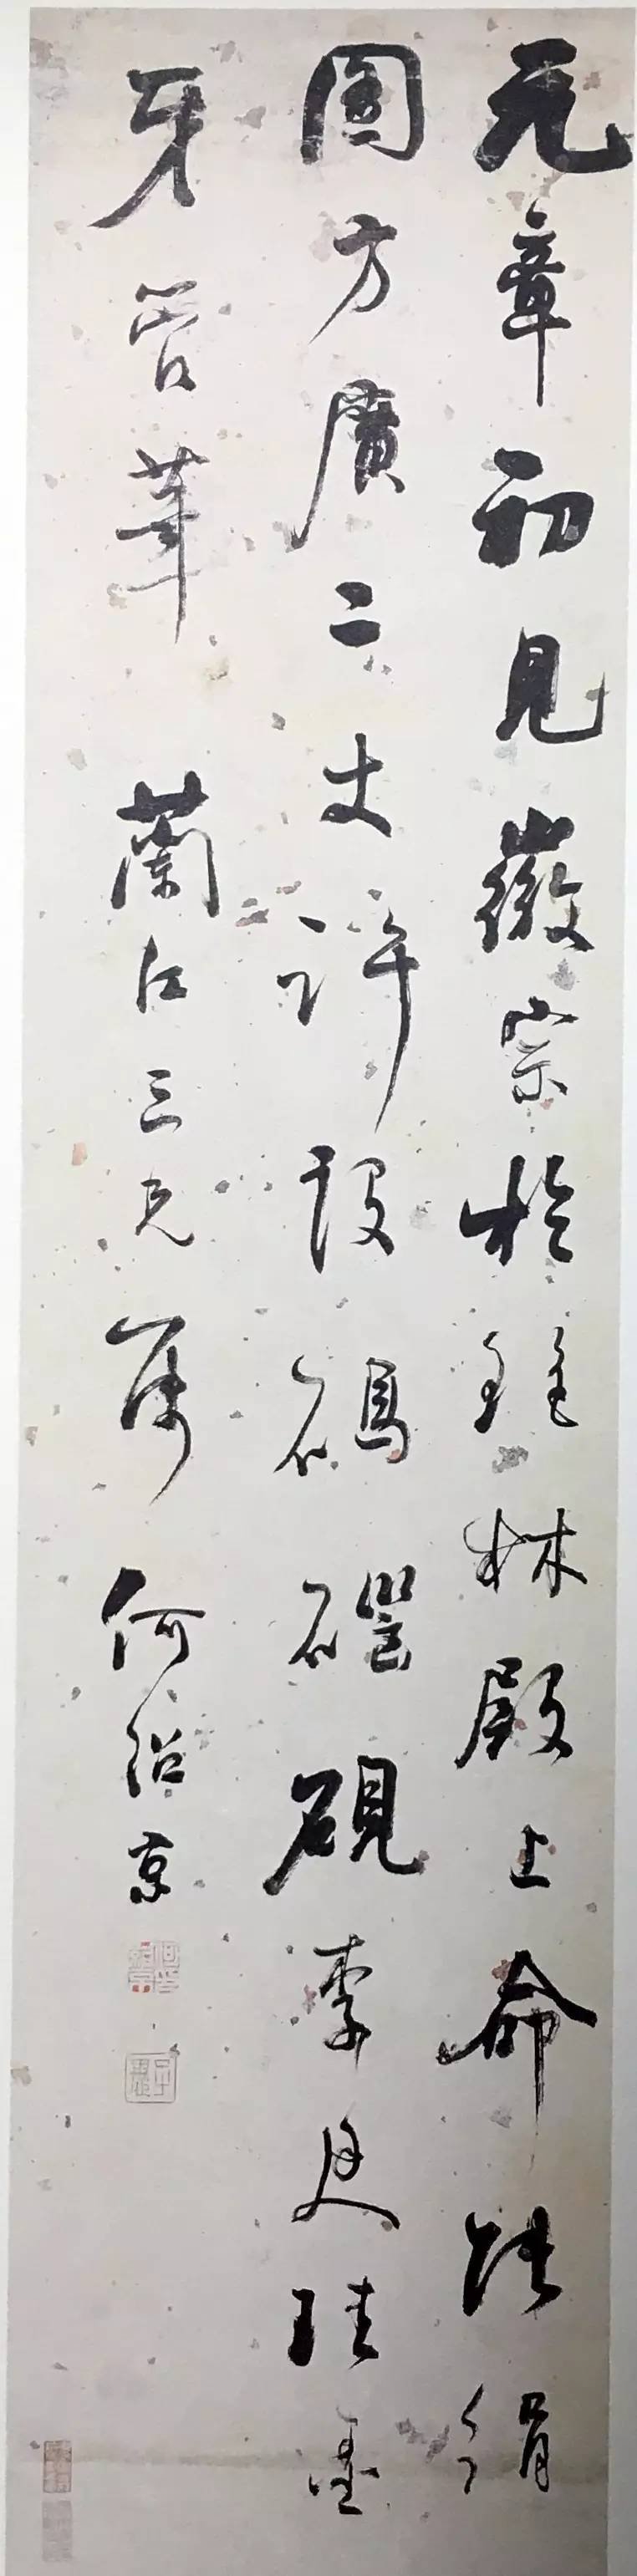 元章初見徽宗於瑤林殿上命張絹
圖方廣二丈許設碼碯硯李廷珪墨
牙管筆 蘭江三兄屬 何紹京